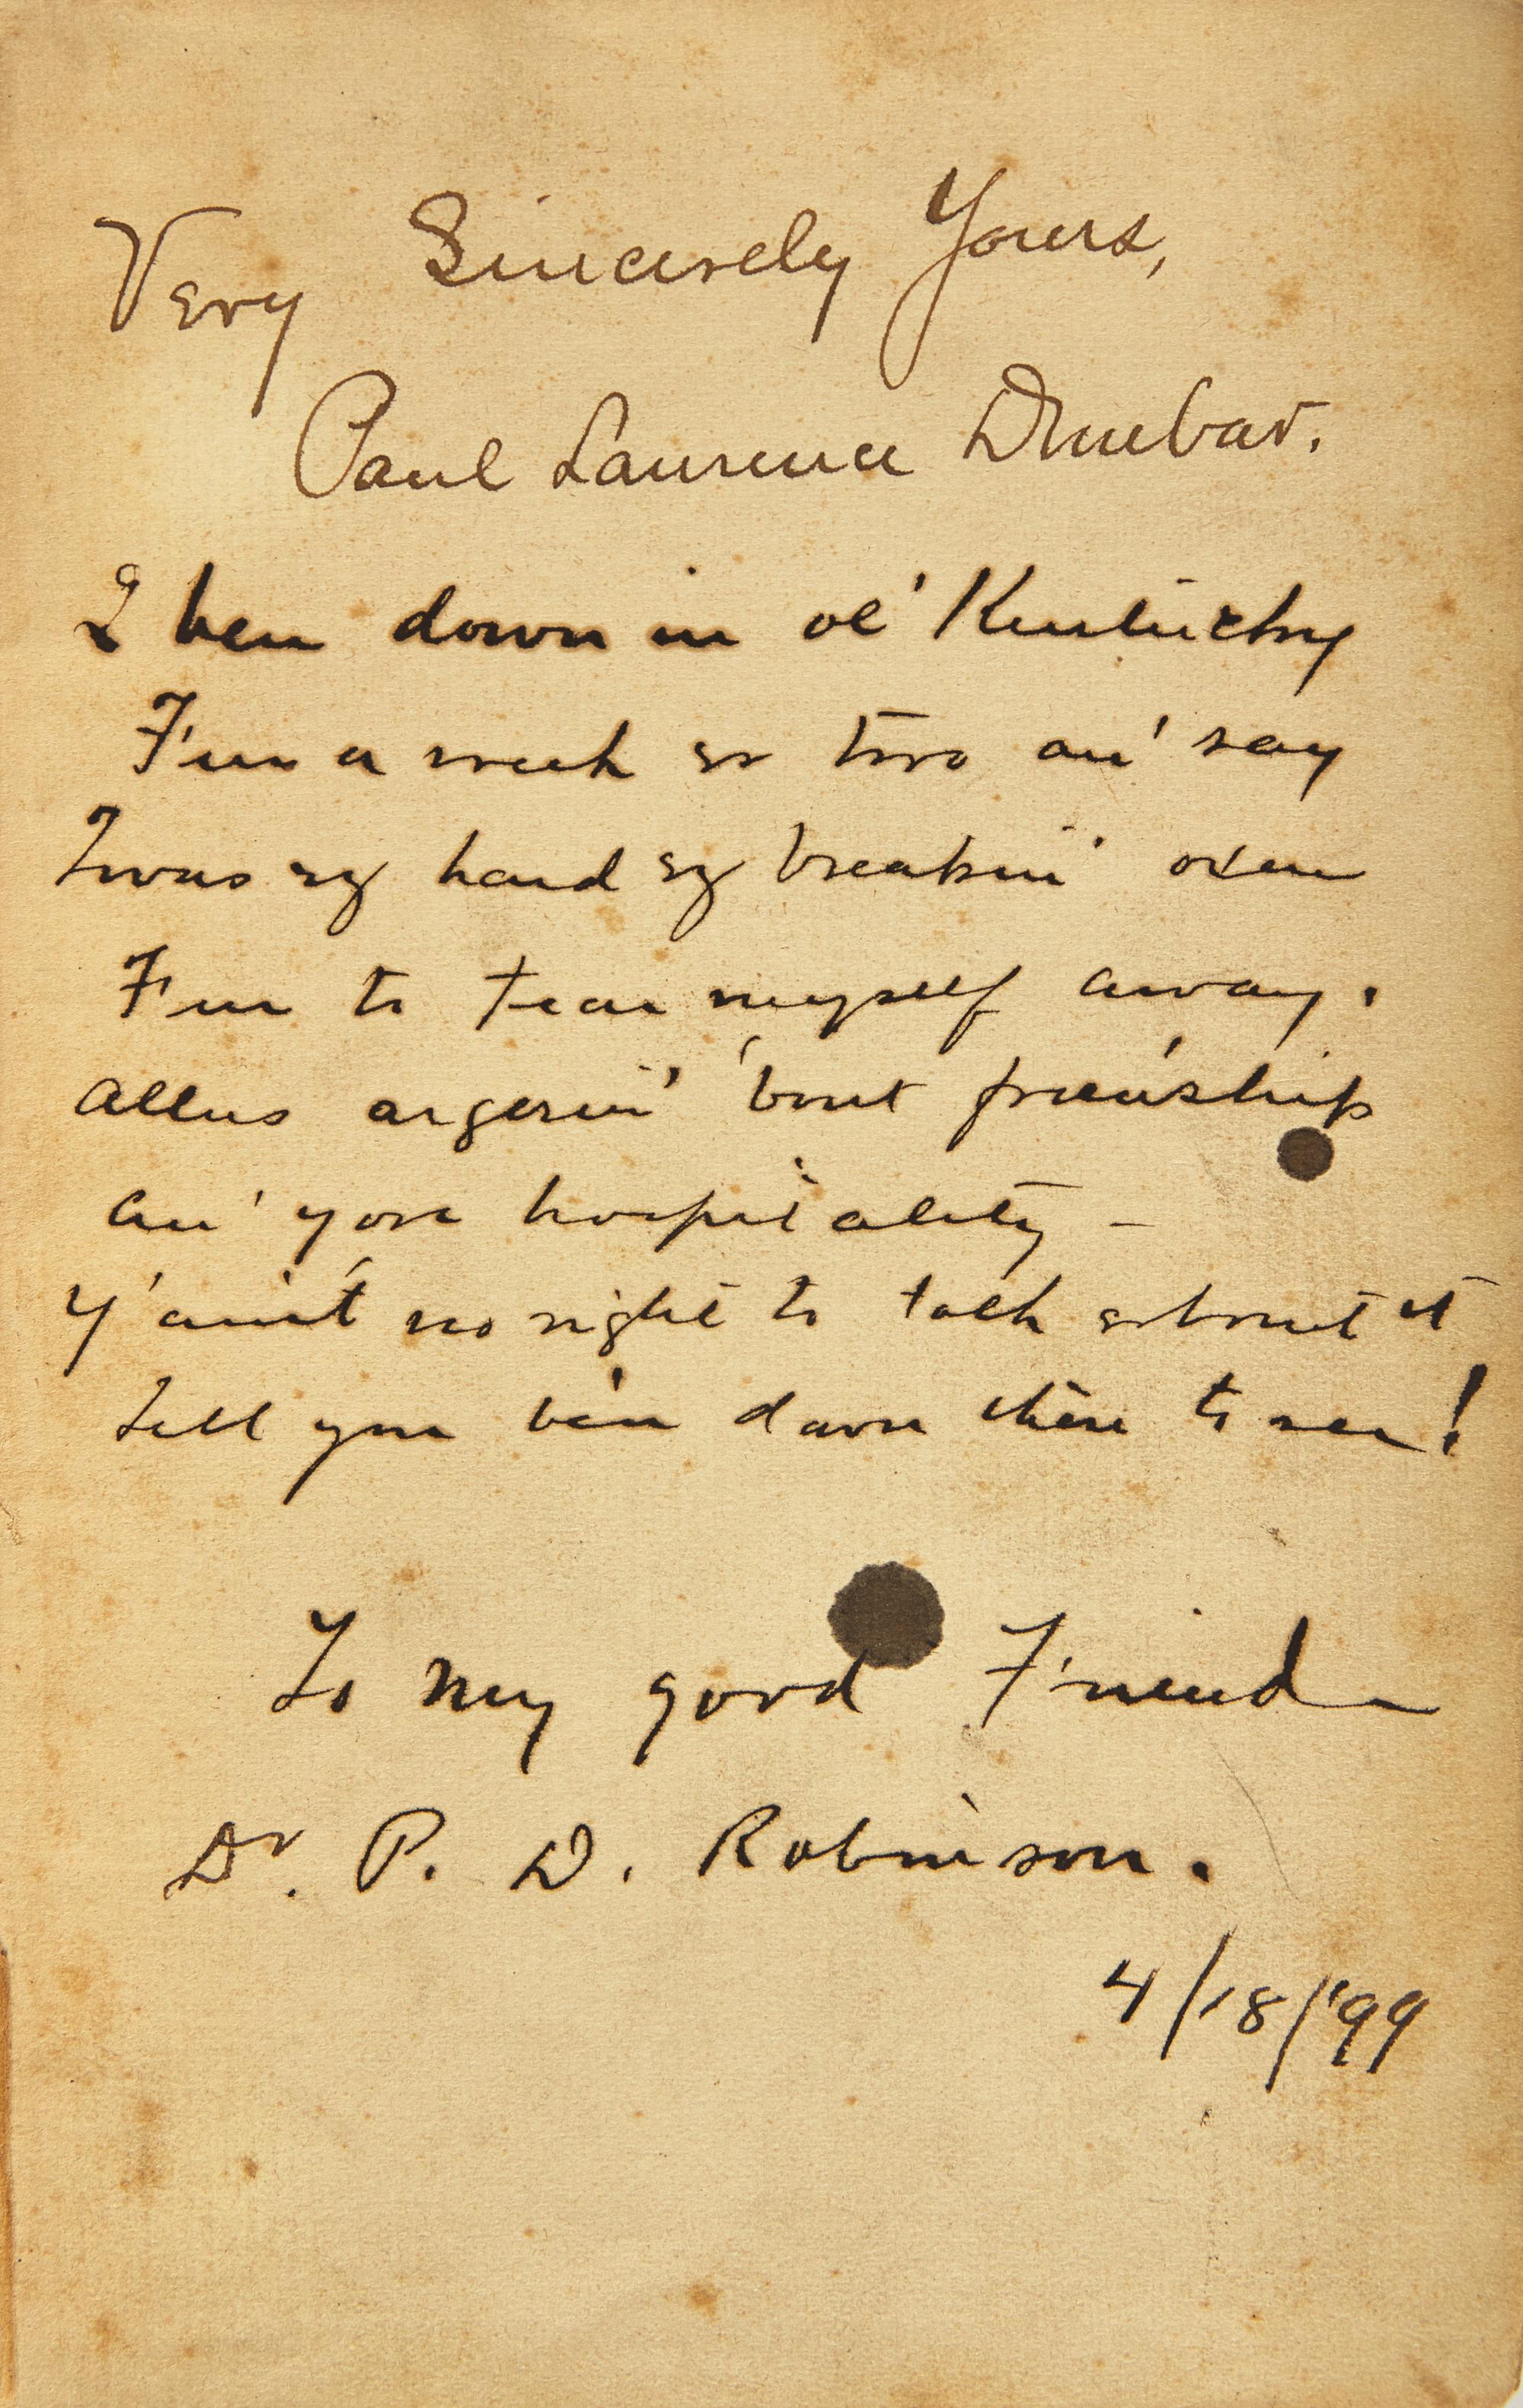 Very Sincerely Yours,
Paul Laurence Dunbar.
I ben down in ol' Kentucky
Fur a week er two an' say
Twas ez hard ez breakin' oxen
Fur to tear myself away.
Allus argerin' 'bout frien'ship
An' yore hospitality –
Y' ain't no right to talk about it
Tell you be'n down there to see!
To my good Friend
Dr. P. D. Robinson.
4/18/'99